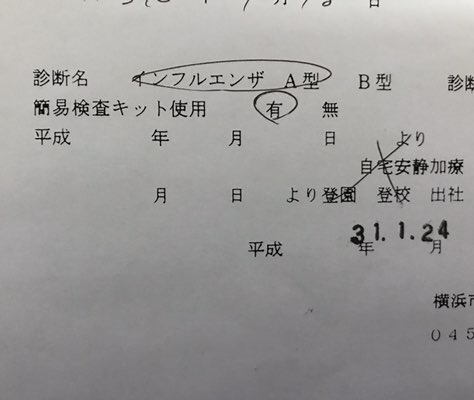 診断名 インフルエンザ A型 B型 診断
簡易検査キット使用 有 無
平成 年 月 日 より
自宅安静加療
月 日 より 登園 登校 出社
平成 31.1.24 年 月
横浜市
045